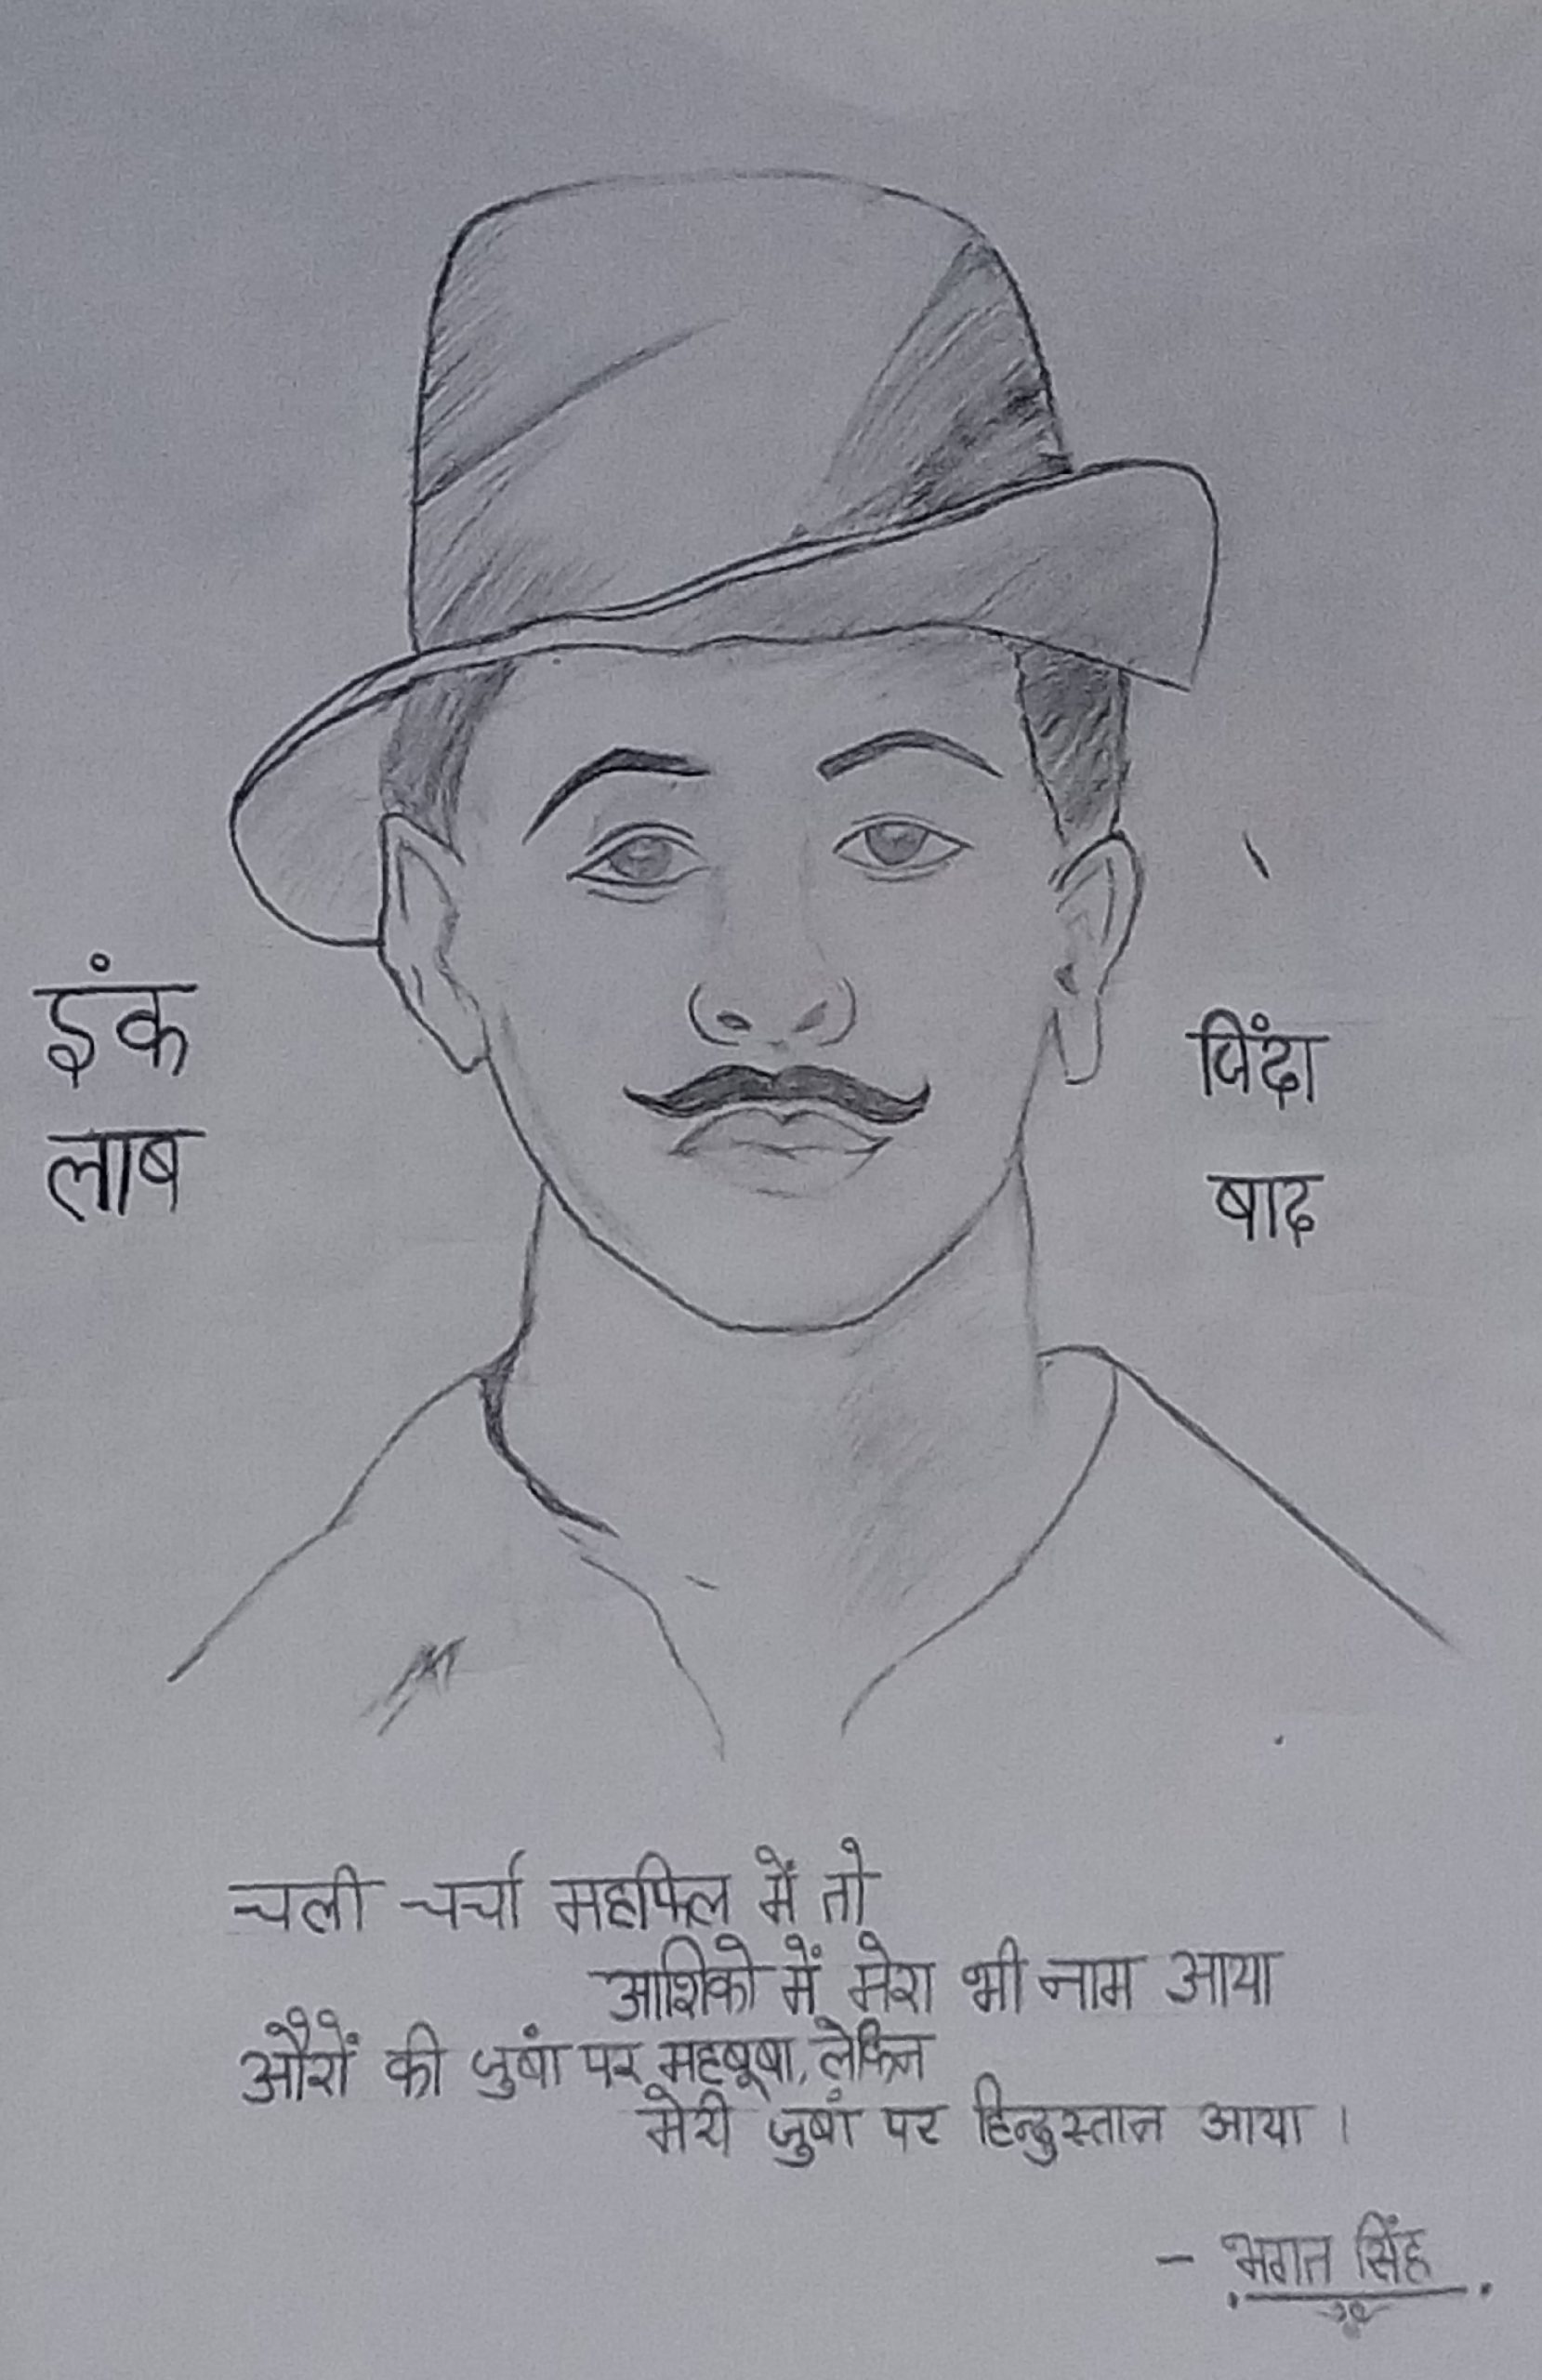 इंक
लाब
जिंदा
बाद
चली चर्चा महफिल में तो
आशिको में मेरा भी नाम आया
औरों की जुबां पर महबूबा, लेकिन
मेरी जुबां पर हिन्दुस्तान आया ।
- भगत सिंह